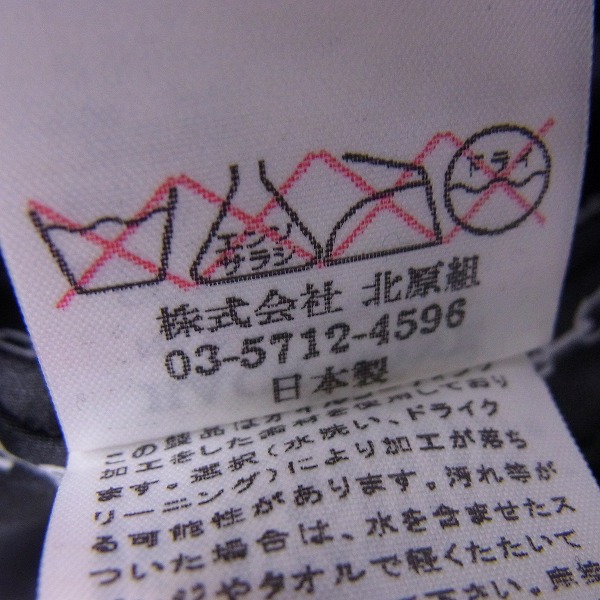 エンソ
サラシ
ドライ
株式会社 北原組
03-5712-4596
日本製
この製品は
加工をした素材を使用しており
ます。選択(水洗い、ドライク
リーニング)により加工が落ち
る可能性があります。汚れ等が
ついた場合は、水を含ませたス
やタオルで軽くたたいて
下さい。直接